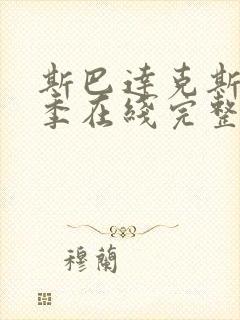 斯巴達克斯
季在綫完整
穆蘭